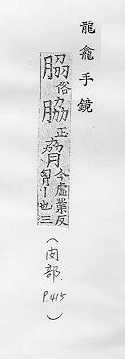 龍龕手鏡
俗脇正脅今虛業反
胷丨也三
(肉部 P.415)